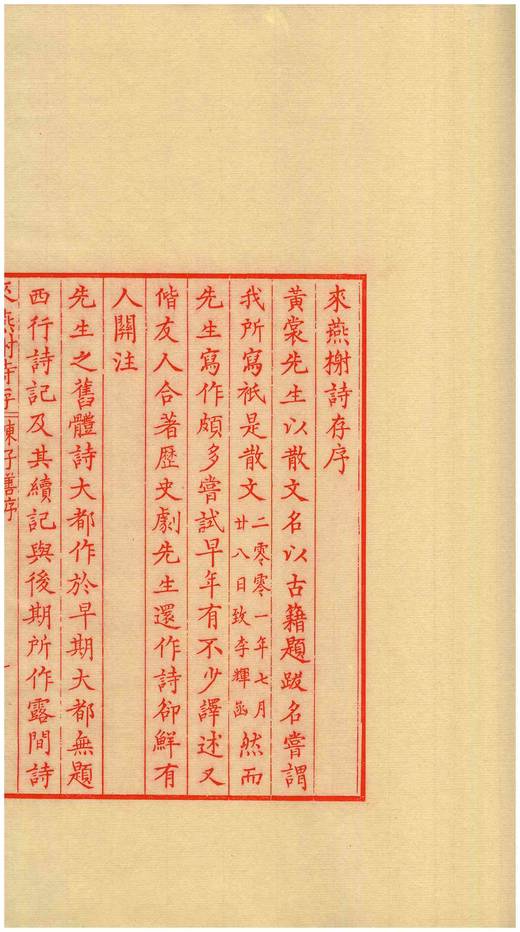 來燕榭詩存序
黃裳先生以散文名以古籍題跋名嘗謂
我所寫祇是散文二零零一年七月廿八日致李輝函然而
先生寫作頗多嘗試早年有不少譯述又
偕友人合著歷史劇先生還作詩卻鮮有
人關注
先生之舊體詩大都作於早期大都無題
西行詩記及其續記與後期所作露間詩
來燕榭詩存 陳子善序 一